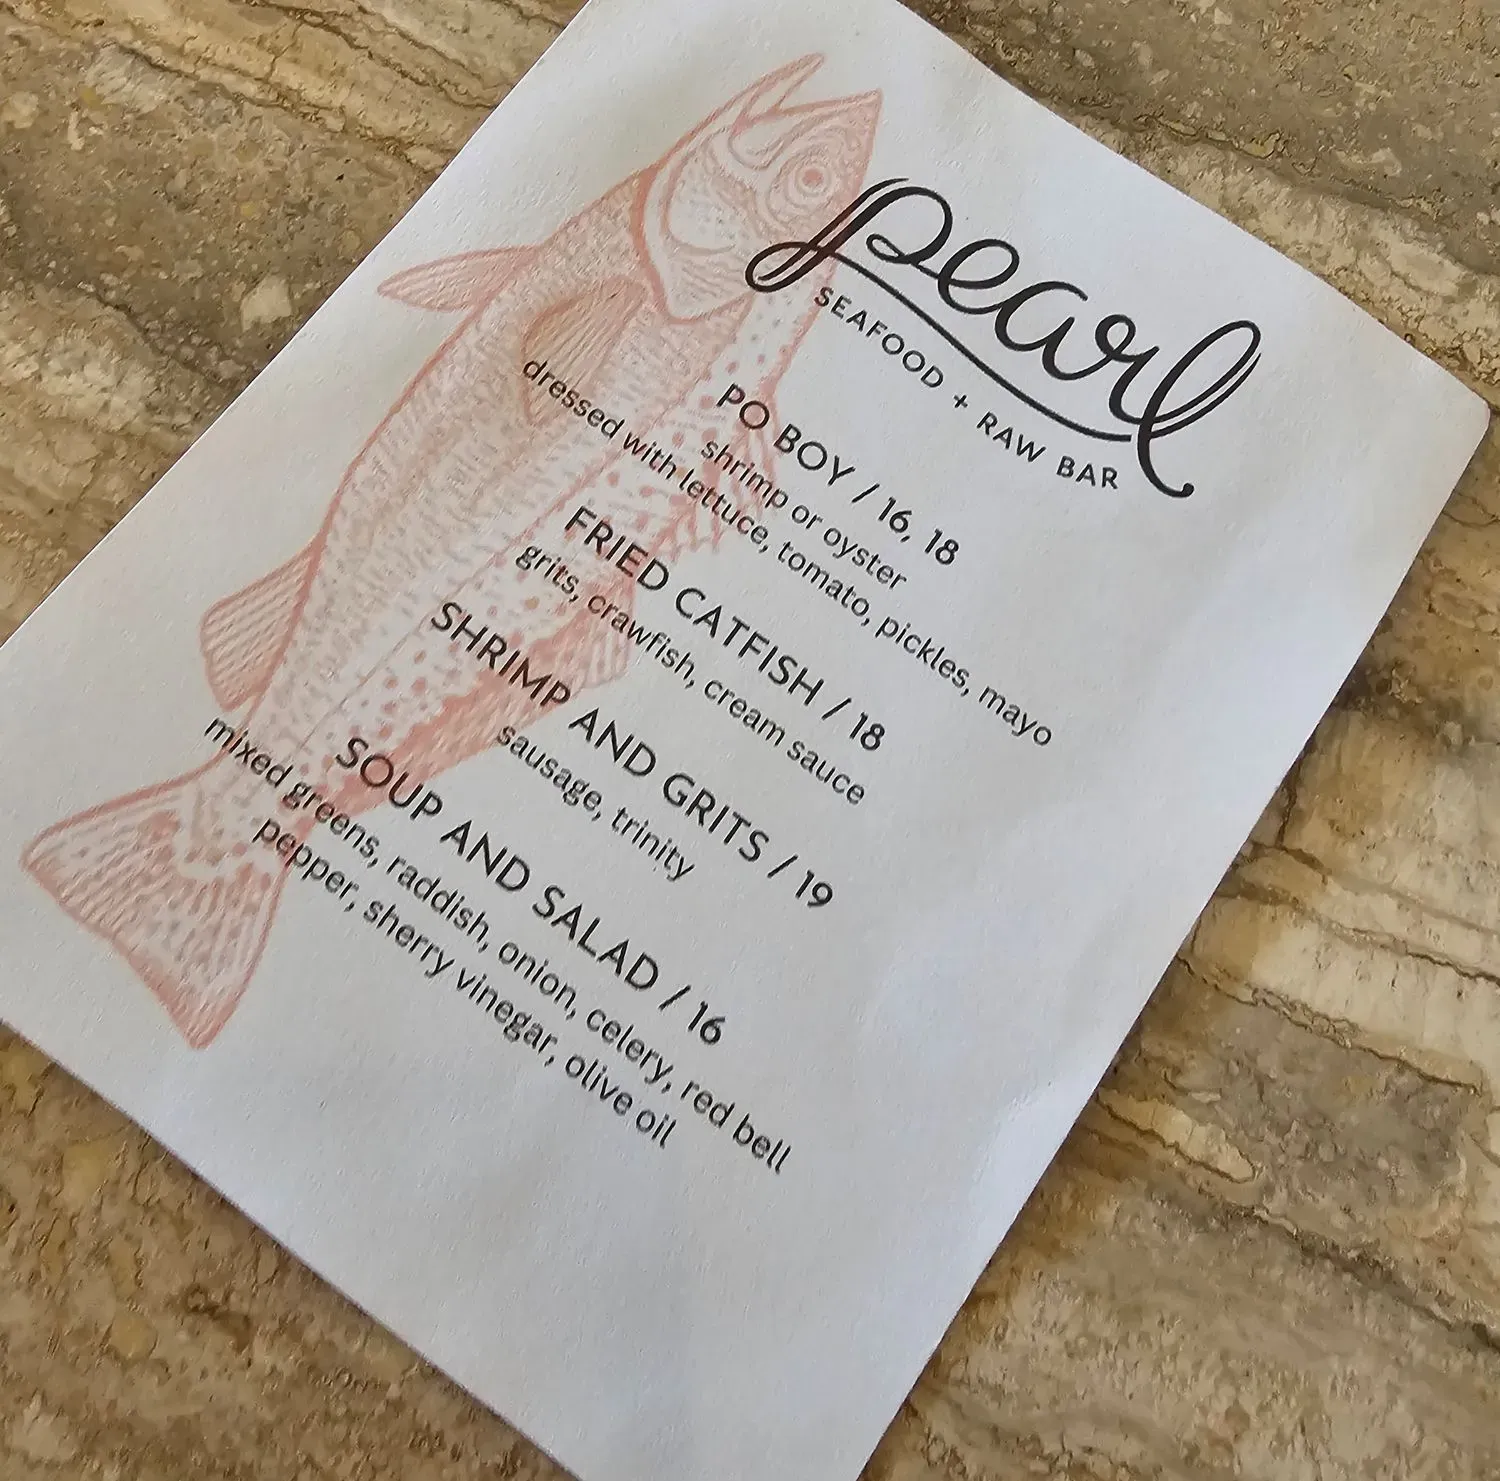 pearl
SEAFOOD + RAW BAR
PO BOY / 16, 18
shrimp or oyster
dressed with lettuce, tomato, pickles, mayo
FRIED CATFISH / 18
grits, crawfish, cream sauce
SHRIMP AND GRITS / 19
sausage, trinity
SOUP AND SALAD / 16
mixed greens, raddish, onion, celery, red bell
pepper, sherry vinegar, olive oil